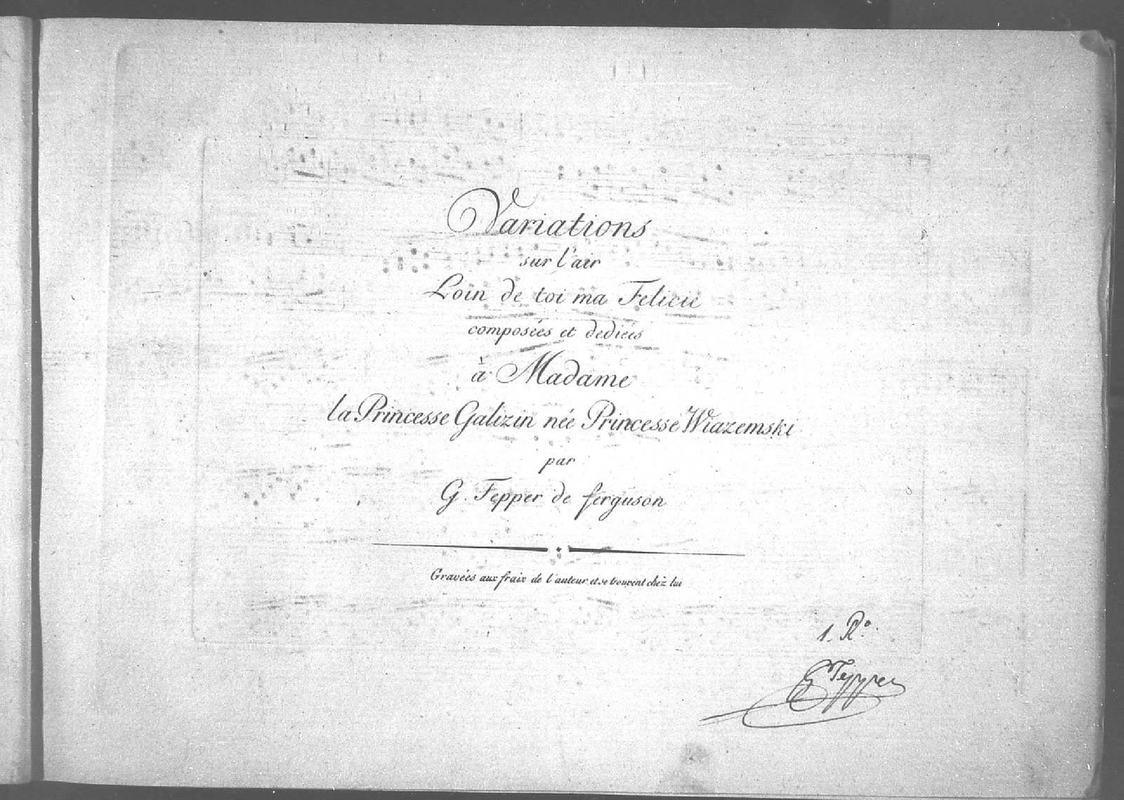 Variations
sur l'air
Loin de toi ma Felicie
composées et dediées
à Madame
la Princesse Galizin née Princesse Wiazemski
par
G. Tepper de ferguson
Gravées aux fraix de l'auteur et se trouvent chez lui
1. Ro.
G Tepper